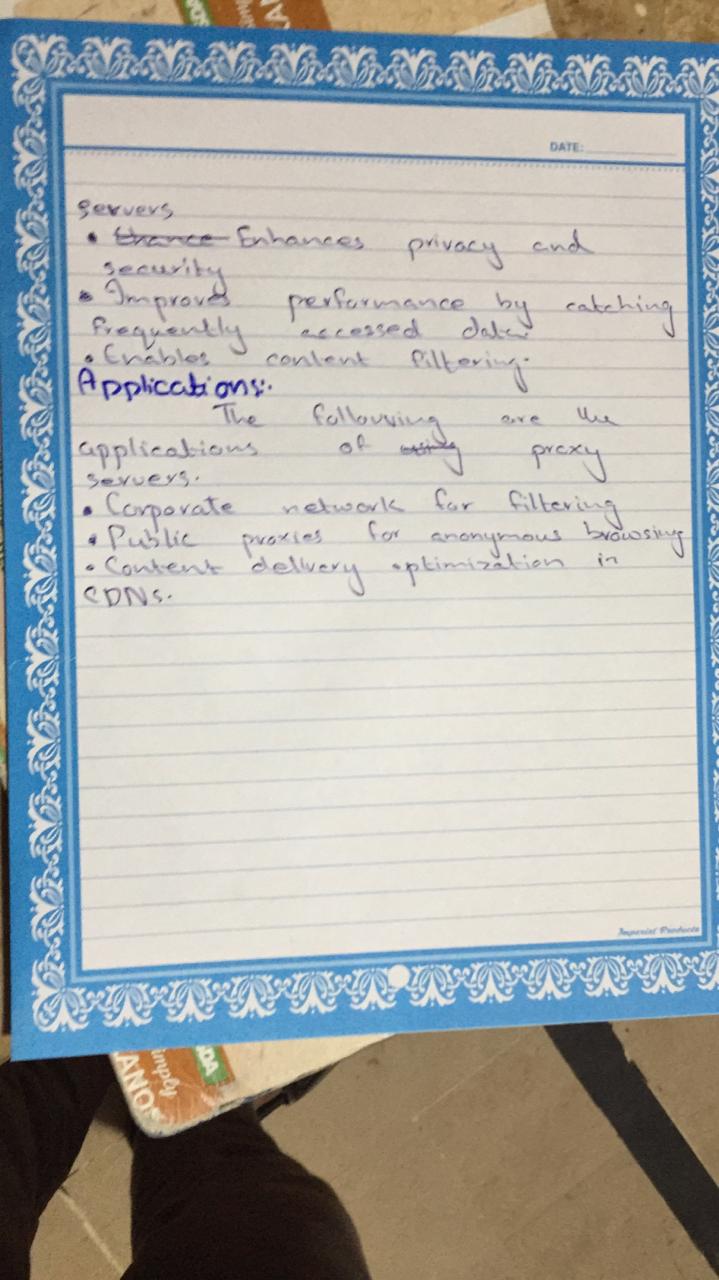 DATE:
servers
• Enhances privacy and
security
• Improves performance by catching
frequently accessed data.
• Enables content filtering.
Applications:
The following are the
applications of proxy
servers.
• Corporate network for filtering
• Public proxies for anonymous browsing
• Content delivery optimization in
CDNs.
Imperial Products
Simply